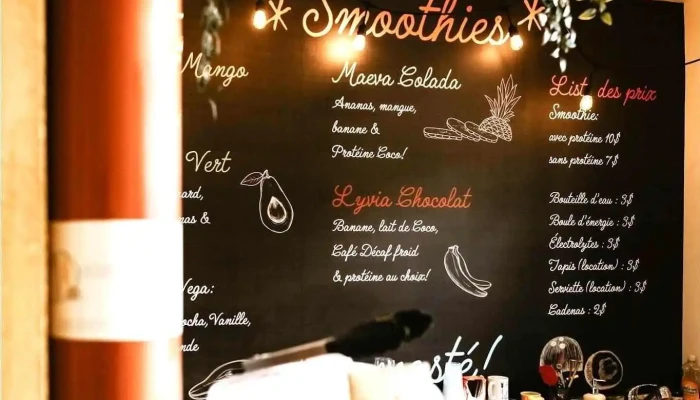 * Smoothies *
Mango
Vert
Vega:
Vanille,
Maeva Colada
Ananas, mangue,
banane &
Protéine Coco!
Lyvia Chocolat
Banane, lait de Coco,
Café Décaf froid
& protéine au choix!
List des prix
Smoothie:
avec protéine 10$
sans protéine 7$
Bouteille d'eau : 3$
Boule d'énergie : 3$
Électrolytes : 3$
Tapis (location) : 3$
Serviette (location) : 3$
Cadenas : 2$